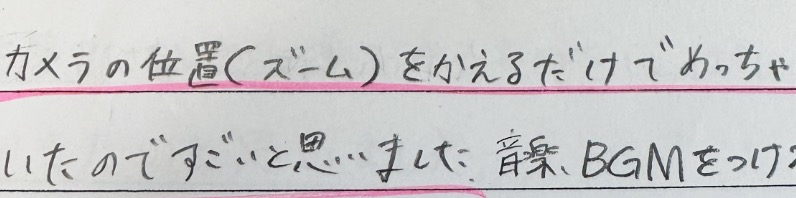 カメラの位置(ズーム)をかえるだけでめっちゃ
いたのですごいと思いました。音楽、BGMをつけ